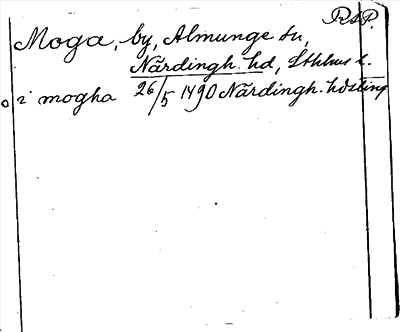 RAP.
Moga, by, Almunge sn,
Närdingh. hd, Sthlms l.
i mogha 26/5 1490 Närdingh. hdsting